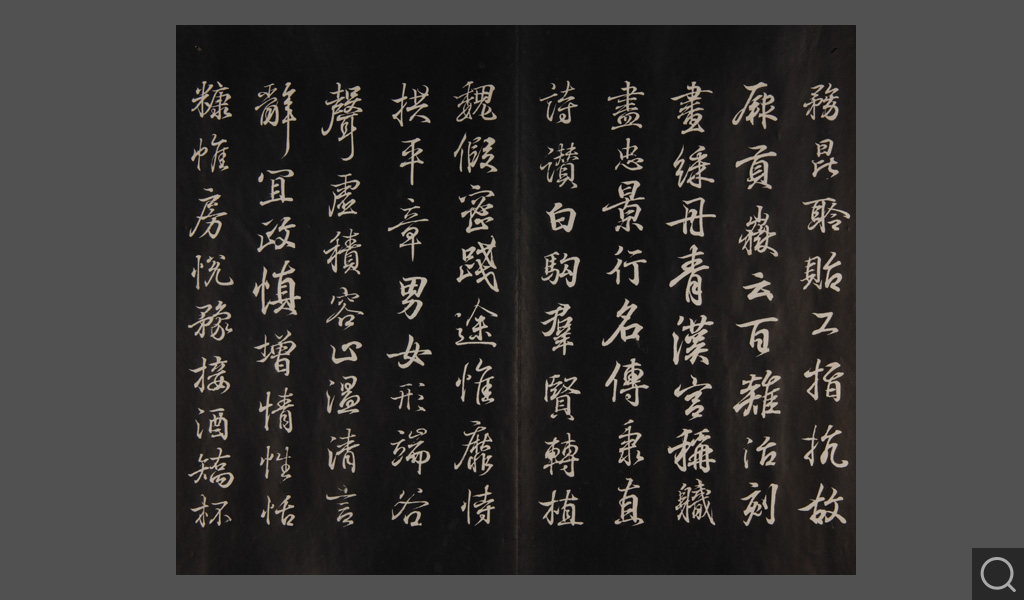 務昆聆貽工指抗故
厥貢嶽云百雞治刻
畫綵丹青漢宮稱軄
盡忠景行名傳秉直
詩讚白駒羣賢轉植
魏假密踐途惟靡恃
拱平章男女形端谷
聲虛積容止溫清言
辭宜政慎增情性恬
糠帷房悅豫接酒矯杯